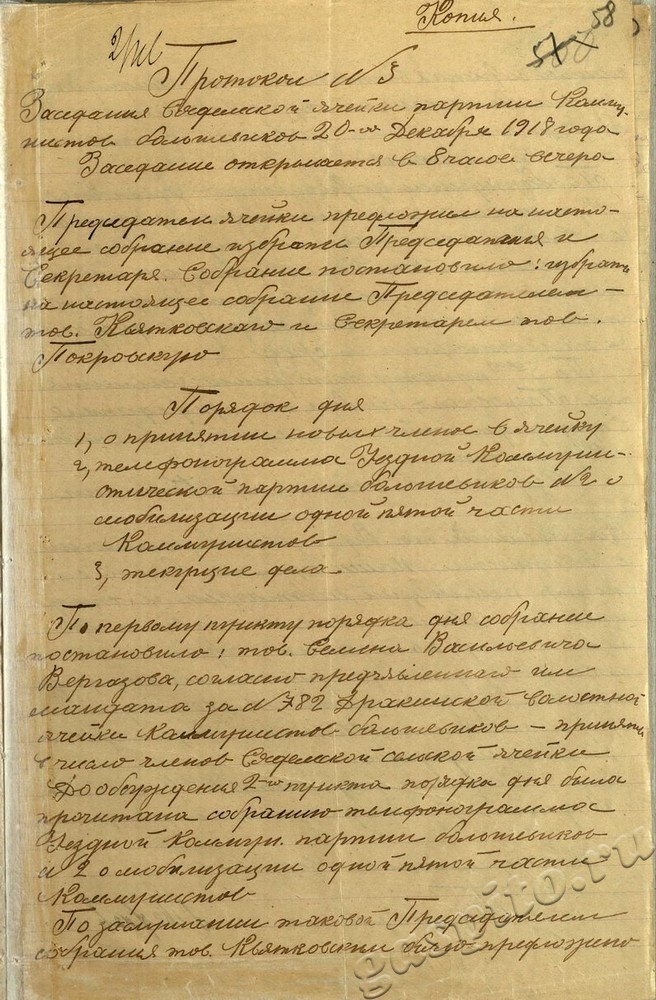 Копия.
58
Протокол №3
Заседания Сядемской ячейки партии Комму-
нистов большевиков 20-го Декабря 1918 года
Заседание открывается в 8 часов вечера
Председатель ячейки предложил на насто-
ящее собрание избрать Председателя и
Секретаря. Собрание постановило: избрать
на настоящее собрание Председателем –
тов. Квятковскаго и Секретарем тов.
Покровскую
Порядок дня
1, о принятии новых членов в ячейку
2, телефонограмма Уездной Коммуни-
стической партии большевиков №2 о
мобилизации одной пятой части
Коммунистов
3, текущие дела
По первому пункту порядка дня собрание
постановило: тов. Семена Васильевича
Вергазова, согласно предъявленнаго им
мандата за №782 Дракинской волостной
ячейки Коммунистов большевиков – принять
в число членов Сядемской сельской ячейки
До обсуждения 2-го пункта порядка дня была
прочитана собранию телефонограмма
Уездной Коммун. партии большевиков
№2 о мобилизации одной пятой части
Коммунистов
По заслушании таковой Председателем
собрания тов. Квятковским было предложено
gaspito.ru